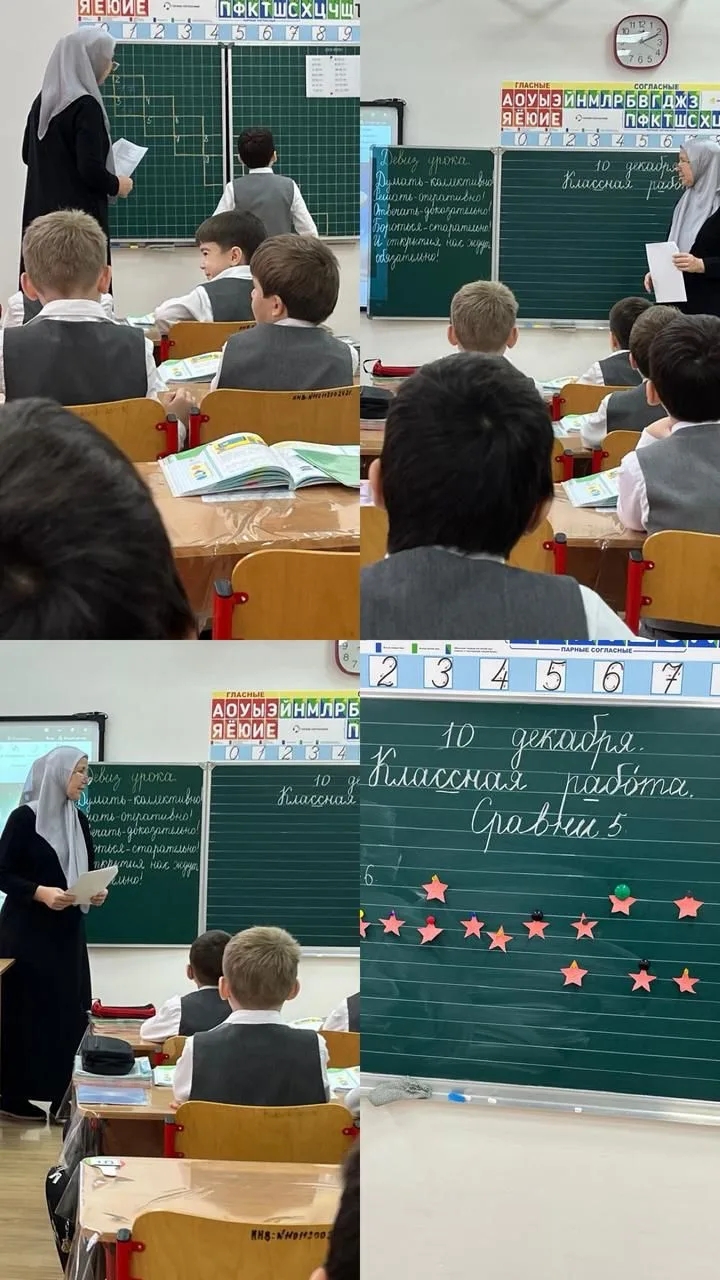 ЯЁЮИЕ
ПФКТШСХЦЧЩ
ПАРНЫЕ СОГЛАСНЫЕ
0 1 2 3 4 5 6 7 8 9
ГЛАСНЫЕ СОГЛАСНЫЕ
АОУЫЭЙНМЛРБВГДЖЗ
ЯЁЮИЕ ПФКТШСХЦ
Девиз урока.
Думать-коллективно!
Решать-оперативно!
Отвечать-доказательно!
Бороться-старательно!
И открытия нас ждут
обязательно!
10 декабря
Классная рабо
ГЛАСНЫЕ СОГЛАСНЫЕ
АОУЫЭЙНМЛРБ
ЯЁЮИЕ П
0 1 2 3 4
Девиз урока.
Думать-коллективно!
шать-оперативно!
вечать-доказательно!
оться-старательно!
ткрытия нас ждут
ельно!
10 де
Классная
ПАРНЫЕ СОГЛАСНЫЕ
2 3 4 5 6 7
10 декабря.
Классная работа.
Сравни 5
6.